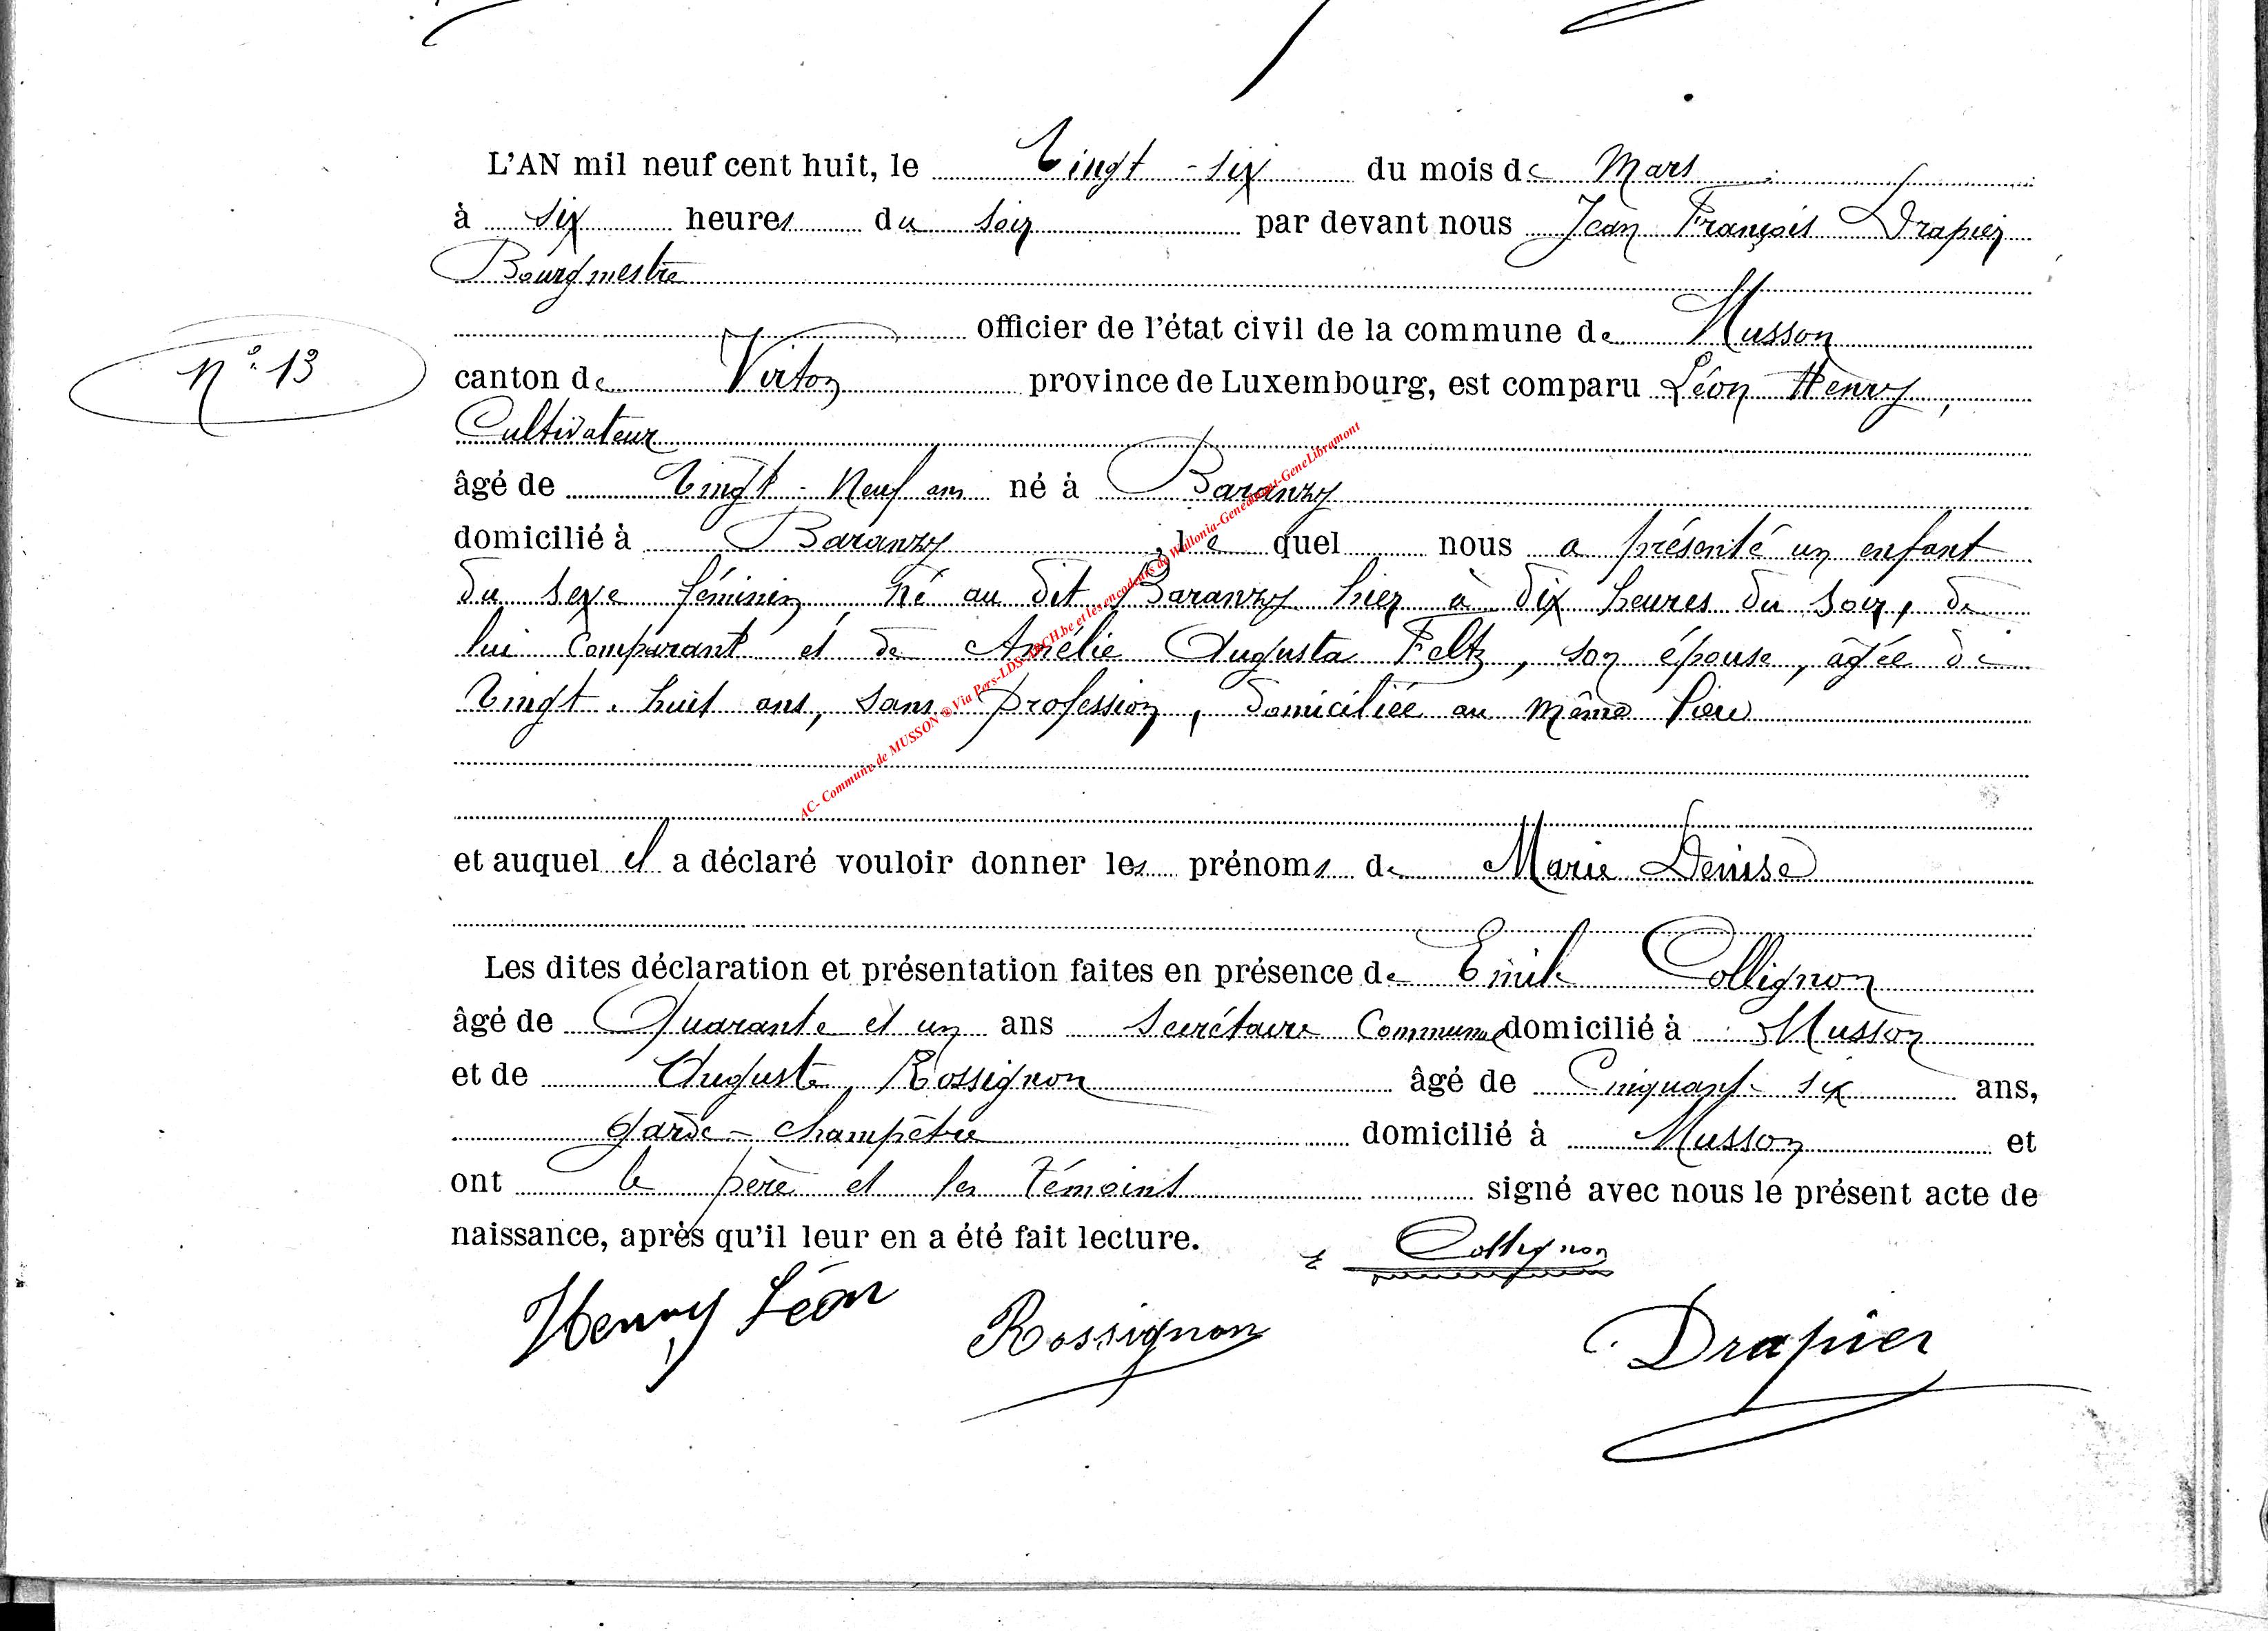 L'AN mil neuf cent huit, le Vingt-six du mois de Mars
à six heures du soir par devant nous Jean François Drapier
Bourgmestre
officier de l'état civil de la commune de Musson
N° 13
canton de Virton province de Luxembourg, est comparu Léon Henry,
Cultivateur
âgé de Vingt-Neuf ans né à Baranzy
domicilié à Baranzy, le quel nous a présenté un enfant
du sexe féminin, né au dit Baranzy hier à dix heures du soir, de
lui Comparant et de Amélie Augusta Feltz, son épouse, âgée de
Vingt-huit ans, sans profession, domiciliée au même lieu
AC- Commune de MUSSON ® Via Pers-LDS-ARCH.be et les encodeurs de Wallonia-Genedinant-GeneLibramont
et auquel il a déclaré vouloir donner les prénoms de Marie Denise
Les dites déclaration et présentation faites en présence de Emile Collignon
âgé de Quarante et un ans Secrétaire Communal domicilié à Musson
et de Auguste Rossignon âgé de Cinquante-six ans,
Garde-Champêtre domicilié à Musson et
ont le père et les témoins signé avec nous le présent acte de
naissance, après qu'il leur en a été fait lecture.
E Collignon
Henry Léon
Rossignon
Drapier